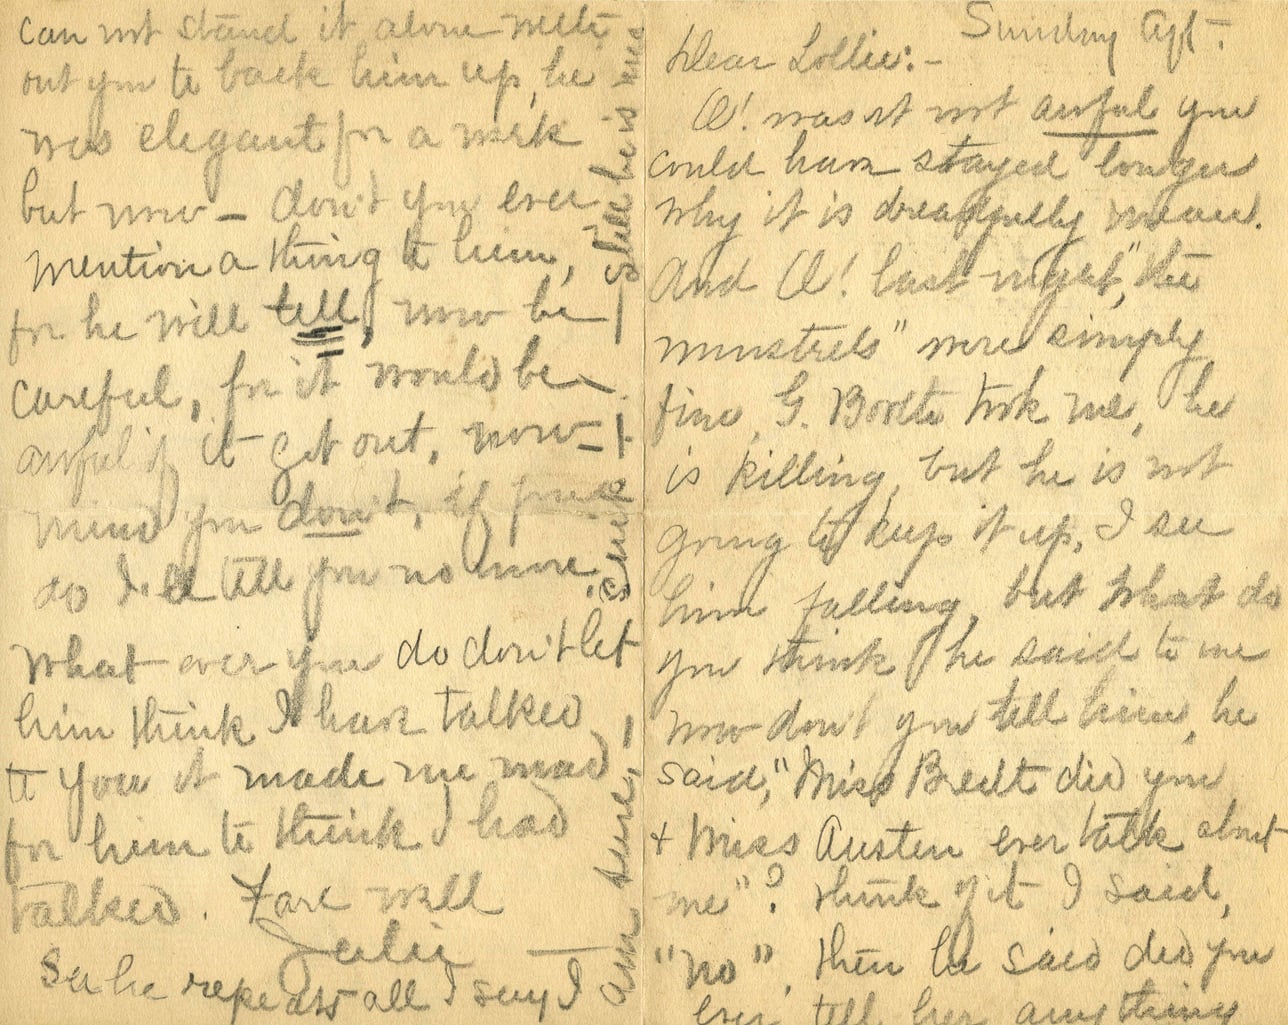 Sunday Aft.
Dear Lollie:-
O! was it not awful you
could have stayed longer
why it is dreadfully mean.
And O! last night, "the
minstrels" were simply
fine, G. took me, he
is killing, but he is not
going to keep it up, I see
him falling, but what do
you think he said to me
now don't you tell him, he
said, "Miss did you
+ Miss Austen ever talk about
me"? think of it I said,
"no", then he said did you
ever tell her anything
can not stand it alone with
out you to back him up, he
was elegant for a week
but now — don't you ever
mention a thing to him,
for he will tell, now be
careful, for it would be
awful if it got out, now —
mind you don't, if you
do I'll tell you no more.
What ever you do don't let
him think I have talked
to you it made me mad
for him to think I had
talked. Fare well
Julie
See he repeats all I say I
am sure, — still he is nice